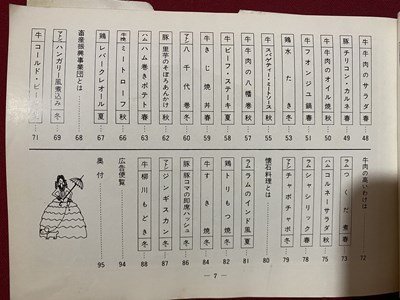 牛 牛肉のサラダ 春 48
豚 チリコン・カルネ 春 49
牛 牛肉のオイル焼 秋 50
牛 フオンジユ鍋 春 51
鶏 水たき 冬 53
牛 スパゲティーミートソース 秋 55
牛 牛肉の八幡巻 秋 57
牛 ビーフ・ステーキ 夏 58
牛 きじ焼丼 春 59
マトン 八千代巻 冬 60
豚 里芋のそぼろあんかけ 秋 62
ハム ハム巻きポテト 春 63
牛豚 ミートローフ 秋 66
鶏 レバークレオール 夏 67
畜産振興事業団とは 68
マトン ハンガリー風煮込み 冬 69
牛 コールド・ビーフ 71
牛肉の高いわけは 72
ラム つくだ煮 春 73
ハム コルネーサラダ 秋 75
ラム シヤシリツク 春 78
マトン チヤポチヤポ 冬 79
懐石料理とは 80
ラム ラムのインド風 夏 81
鶏 トリもつ焼 夏 82
牛 すき焼 冬 84
豚 豚コマの即席ハツシユ 冬 86
マトン ジンギスカン 冬 87
牛 柳川もどき 冬 88
広告便覧 94
奥付 95
— 7 —